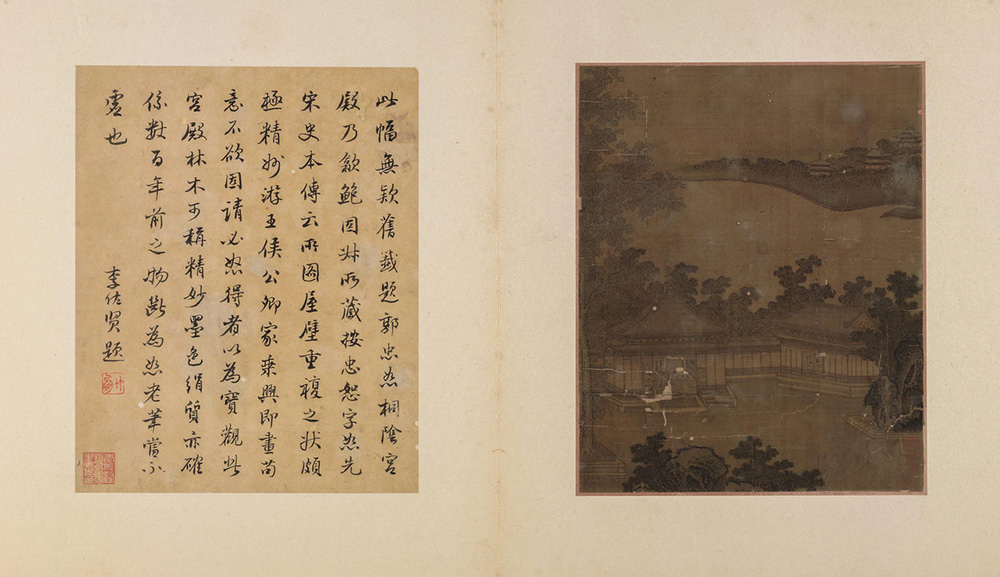 此幅無款舊籤題郭忠恕桐陰宮
殿乃歙鮑因所藏按忠恕字恕先
宋史本傳云所圖屋壁重複之狀頗
極精妙游王侯公卿家乘興即畫苟
意不欲固請必怒得者以為寶觀此
宮殿林木可稱精妙墨色絹質亦確
係數百年前之物斷為恕老筆當不
虛也
李佐賢題